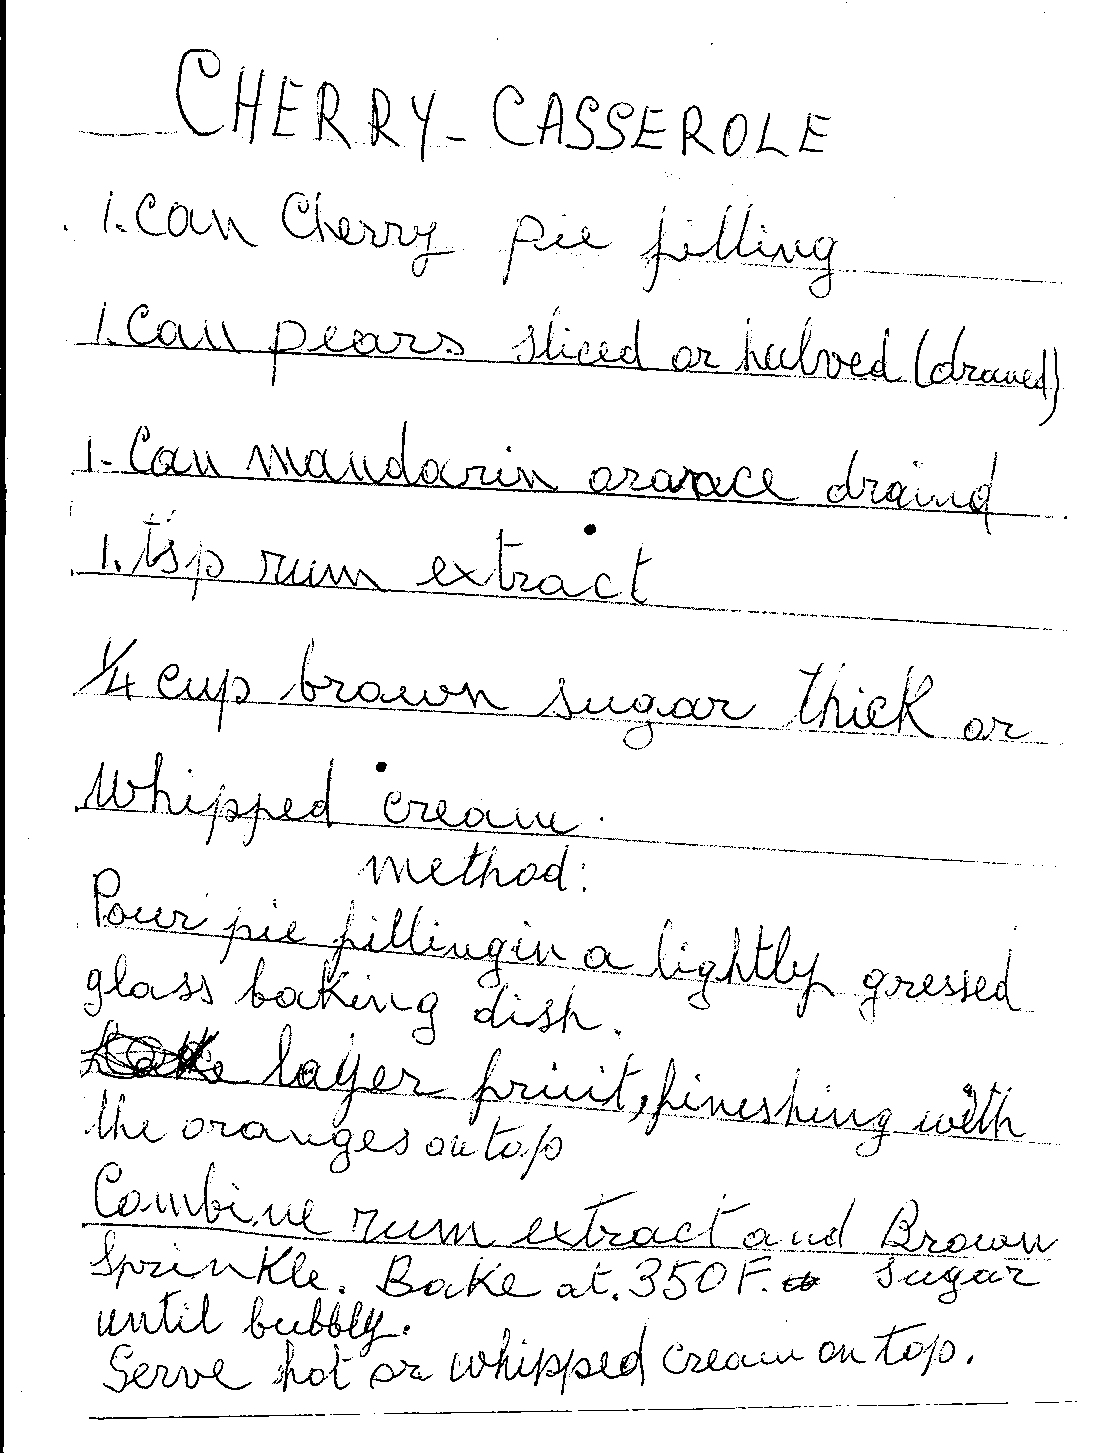 CHERRY - CASSEROLE
1. Can Cherry pie filling
1. Can pears sliced or halved (draned)
1- Can mandarin orarace draind
1. tsp rum extract
1/4 cup brown sugar thick or
Whipped cream.
method:
Pour pie filling in a lightly gressed
glass baking dish.
layer fruit, fineshing with
the oranges on top
Combine rum extract and Brown
Sprinkle. Bake at. 350 F. sugar
until bubbly.
Serve hot or whipped cream on top.